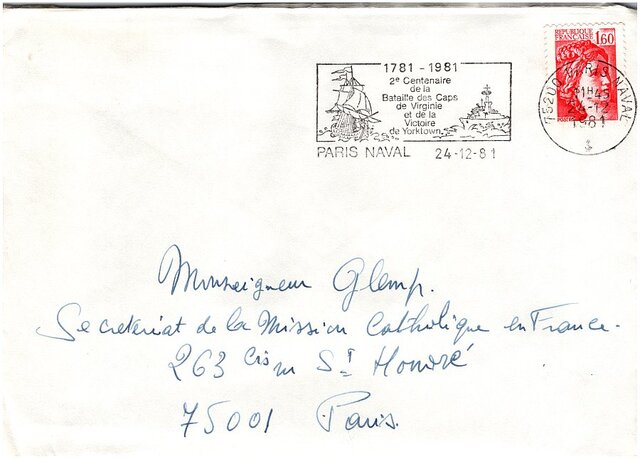 1781 - 1981
2e Centenaire
de la
Bataille des Caps
de Virginie
et de la
Victoire
de Yorktown
PARIS NAVAL 24-12-81
REPUBLIQUE
FRANÇAISE 1,60
75200 PARIS NAVAL
24-12
1981
Monseigneur Glemp.
Secretariat de la Mission Catholique en France.
263 bis rue St Honoré
75001 Paris.